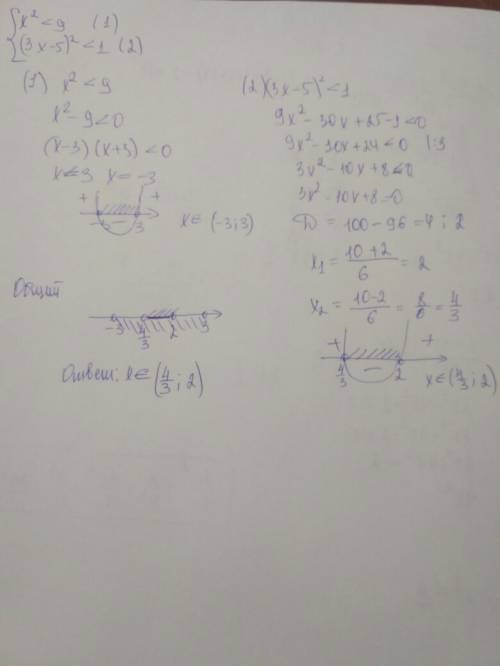 {x² < 9 (1)
{(3x-5)² < 1 (2)
(1) x² < 9
x² - 9 < 0
(x-3)(x+3) < 0
x = 3 x = -3
+ - +
-3 3
x ∈ (-3; 3)
(2) (3x-5)² < 1
9x² - 30x + 25 - 1 < 0
9x² - 30x + 24 < 0 |:3
3x² - 10x + 8 < 0
3x² - 10x + 8 = 0
D = 100 - 96 = 4; 2
x₁ = (10+2)/6 = 2
x₂ = (10-2)/6 = 8/6 = 4/3
+ - +
4/3 2
x ∈ (4/3; 2)
Общий
-3 4/3 2 3
Ответ: x ∈ (4/3; 2)